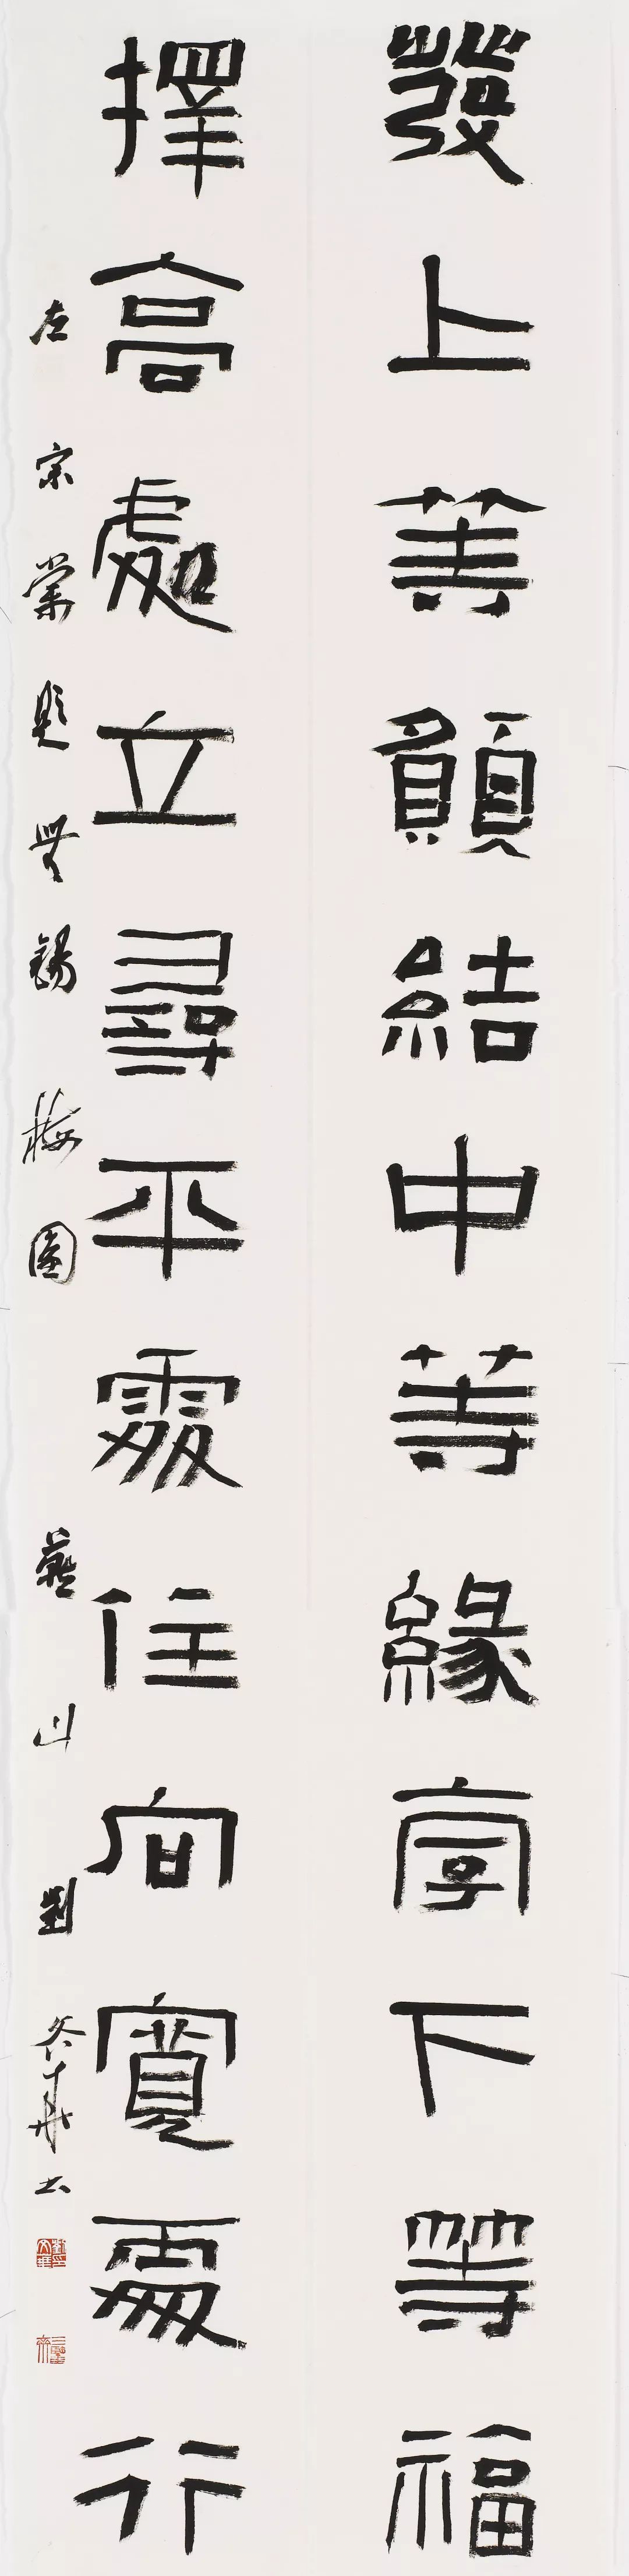 發上等願結中等緣享下等福
擇高處立尋平處住向寬處行
左宗棠題無錫梅園 燕山劉文華書